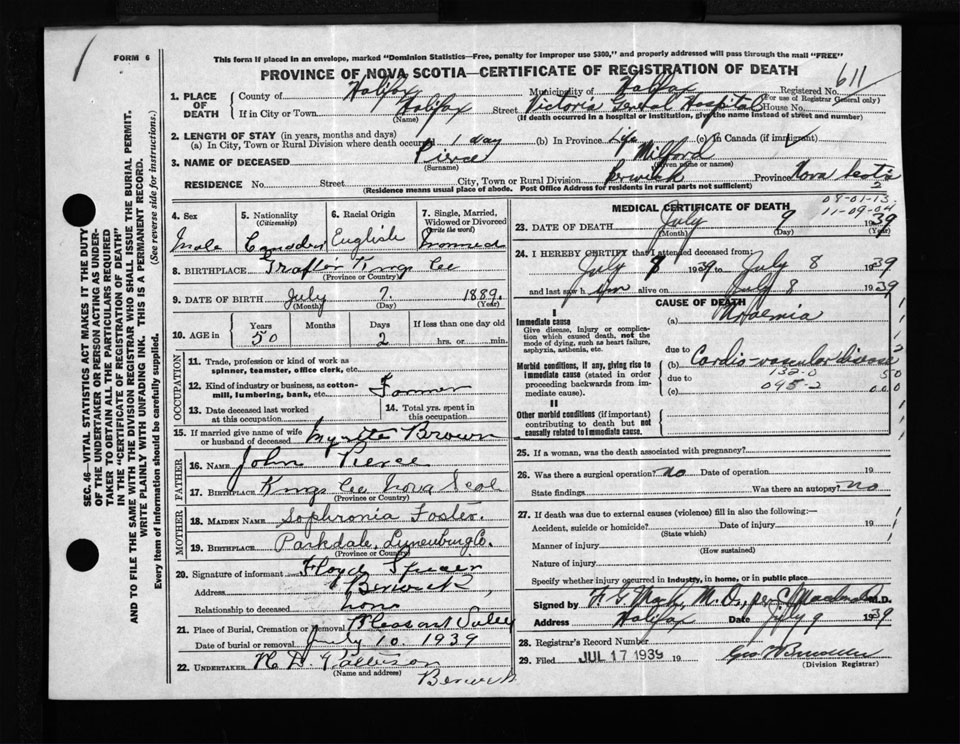 FORM 6
This form if placed in an envelope, marked "Dominion Statistics—Free, penalty for improper use $300," and properly addressed will pass through the mail "FREE"
PROVINCE OF NOVA SCOTIA—CERTIFICATE OF REGISTRATION OF DEATH
SEC. 46—VITAL STATISTICS ACT MAKES IT THE DUTY
OF THE UNDERTAKER OR PERSON ACTING AS UNDER-
TAKER TO OBTAIN ALL THE PARTICULARS REQUIRED
IN THE "CERTIFICATE OF REGISTRATION OF DEATH"
AND TO FILE THE SAME WITH THE DIVISION REGISTRAR WHO SHALL ISSUE THE BURIAL PERMIT.
WRITE PLAINLY WITH UNFADING INK. THIS IS A PERMANENT RECORD.
Every item of information should be carefully supplied. (See reverse side for instructions.)
1. PLACE OF DEATH
County of Halifax Municipality of Halifax Registered No. 611
(For use of Registrar General only)
If in City or Town Halifax Street Victoria General Hospital House No.
(Name) (If death occurred in a hospital or institution, give the name instead of street and number)
2. LENGTH OF STAY (in years, months and days)
(a) In City, Town or Rural Division where death occurred 1 day (b) In Province Life (c) In Canada (if immigrant)
3. NAME OF DECEASED Pierce Milford
(Surname) (Given name or names)
RESIDENCE No. Street City, Town or Rural Division Berwick Province Nova Scotia
(Residence means usual place of abode. Post Office Address for residents in rural parts not sufficient)
2
08-01-13
11-09-04
4. Sex 5. Nationality (Citizenship) 6. Racial Origin 7. Single, Married, Widowed or Divorced (Write the word)
Male English Married
8. BIRTHPLACE Grafton Kings Co
(Province or Country)
9. DATE OF BIRTH July 7. 1889.
(Month) (Day) (Year)
10. AGE in Years Months Days If less than one day old
50 2 hrs. or min.
OCCUPATION
11. Trade, profession or kind of work as spinner, teamster, office clerk, etc.
12. Kind of industry or business, as cotton-mill, lumbering, bank, etc. Farmer
13. Date deceased last worked at this occupation 14. Total yrs. spent in this occupation
15. If married give name of wife or husband of deceased Myrtle Brown
FATHER
16. Name John Pierce
17. Birthplace Kings Co Nova Scot
(Province or Country)
MOTHER
18. Maiden Name Sophronia Foster.
19. Birthplace Parkdale, Lunenburg Co.
(Province or Country)
20. Signature of informant Floyd
Address Berwick
Relationship to deceased none
21. Place of Burial, Cremation or Removal Pleasant Valley
Date of burial or removal July 10. 1939
22. UNDERTAKER
(Name and address)
Berwick
MEDICAL CERTIFICATE OF DEATH
23. DATE OF DEATH July 9 1939
(Month) (Day) (Year)
24. I HEREBY CERTIFY that I attended deceased from:
July 8 1939 to July 8 1939
and last saw him alive on July 8 1939
CAUSE OF DEATH
I
Immediate cause
Give disease, injury or complication which caused death, not the mode of dying, such as heart failure, asphyxia, asthenia, etc.
(a) Uraemia
due to
Morbid conditions, if any, giving rise to immediate cause (stated in order proceeding backwards from immediate cause).
(b) Cardio-vascular disease
132-0 50
due to
(c) 095-2 000
II
Other morbid conditions (if important) contributing to death but not causally related to immediate cause.
25. If a woman, was the death associated with pregnancy?
26. Was there a surgical operation? no Date of operation 19
State findings Was there an autopsy? no
27. If death was due to external causes (violence) fill in also the following:—
Accident, suicide or homicide? Date of injury 19
(State which)
Manner of injury
(How sustained)
Nature of injury
Specify whether injury occurred in industry, in home, or in public place
Signed by M.D.
Address Halifax Date July 9 1939
28. Registrar's Record Number
29. Filed JUL 17 1939 19
(Division Registrar)